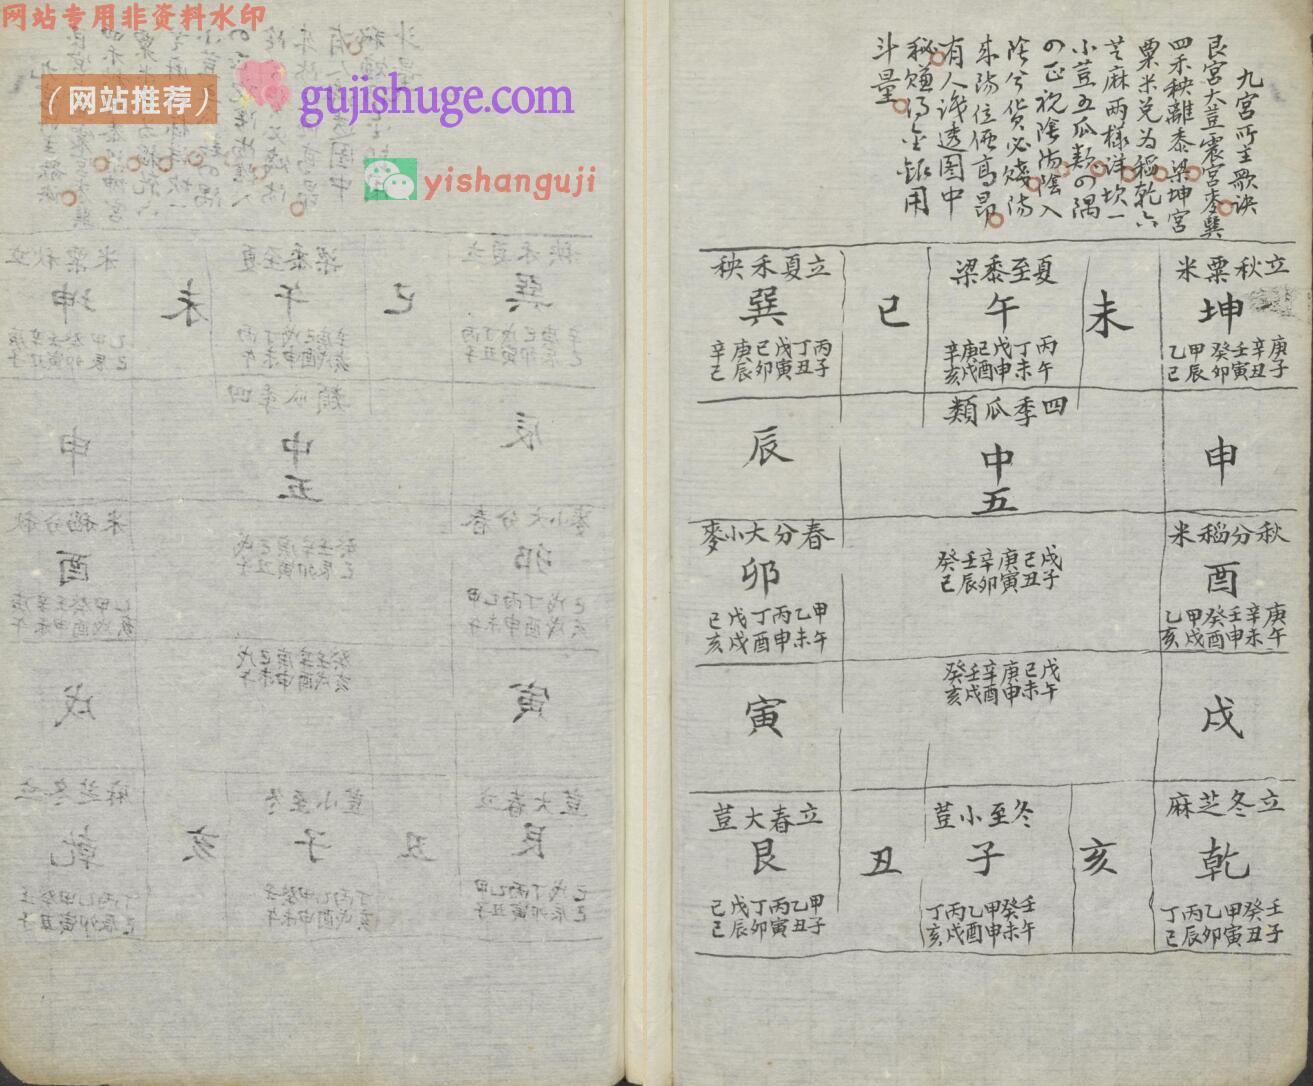 网站专用非资料水印
（网站推荐）
gujishuge.com
yishanguji
九宮所主歌訣
艮宮大荳震宮麥巽
四禾秧離黍梁坤宮
粟米兌为稻乾六
芝麻两樣洋坎一
小荳五瓜類の隅
の正視陰陽陰入
陰兮貨必賤陽
來陽位價高昂
有人識透圖中
秘賺得金銀用
斗量
立夏禾秧
巽
丙丁戊己庚辛
子丑寅卯辰巳
巳
夏至黍梁
午
丙丁戊己庚辛
午未申酉戌亥
未
立秋粟米
坤
庚辛壬癸甲乙
子丑寅卯辰巳
辰
四季瓜類
中
五
申
春分大小麥
卯
甲乙丙丁戊己
午未申酉戌亥
戊己庚辛壬癸
子丑寅卯辰巳
秋分稻米
酉
庚辛壬癸甲乙
午未申酉戌亥
寅
戊己庚辛壬癸
午未申酉戌亥
戌
立春大荳
艮
甲乙丙丁戊己
子丑寅卯辰巳
丑
冬至小荳
子
壬癸甲乙丙丁
午未申酉戌亥
亥
立冬芝麻
乾
壬癸甲乙丙丁
子丑寅卯辰巳